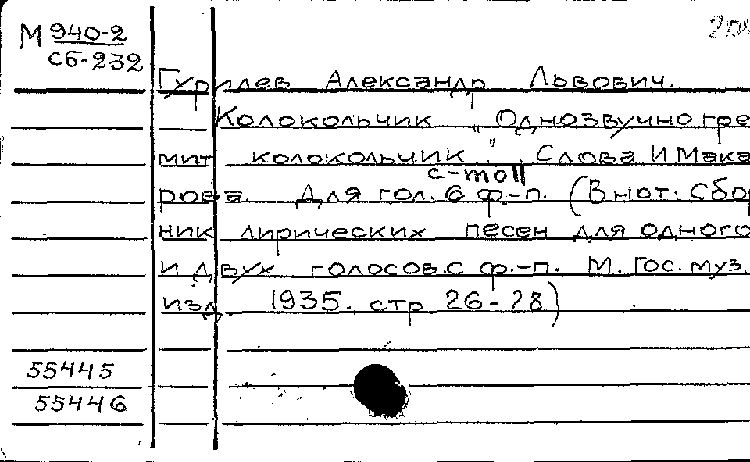 М 940-2
сб-232
Гурилев Александр Львович.
Колокольчик „Однозвучно гре
мит колокольчик". Слова И Мака
c-moll
рова. Для гол. в ф.-п. (В нот: Сбор
ник лирических песен для одного
и двух голосов с ф.-п. М. Гос. муз.
изд. 1935. стр 26-28)
55445
55446